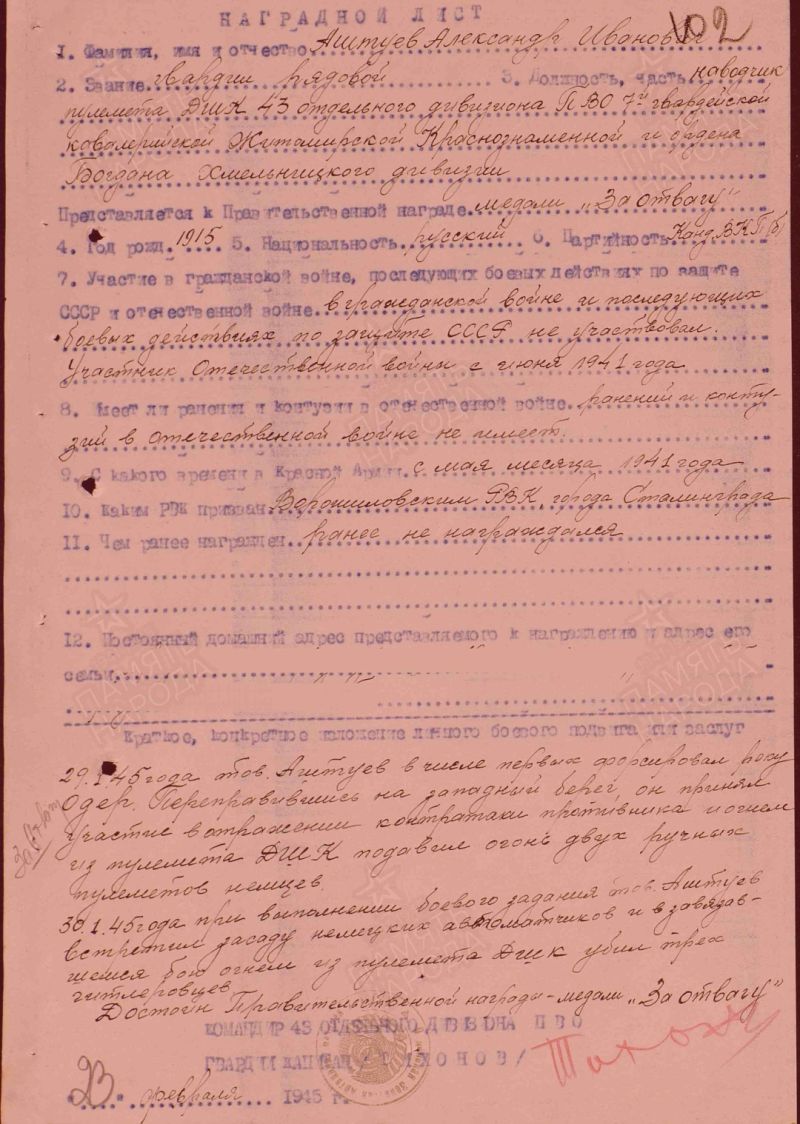 НАГРАДНОЙ ЛИСТ
102
1. Фамилия, имя и отчество Аштуев Александр Иванович
2. Звание гвардии рядовой 3. Должность, часть наводчик
пулемета ДШК 43 отдельного дивизиона ПВО 7й гвардейской
кавалерийской Житомирской Краснознаменной и ордена
Богдана Хмельницкого дивизии
Представляется к Правительственной награде медали „За отвагу"
4. Год рожд. 1915 5. Национальность русский 6. Партийность Канд. ВКП(б)
7. Участие в гражданской войне, последующих боевых действиях по защите
СССР и отечественной войне. в гражданской войне и последующих
боевых действиях по защите СССР не участвовал.
Участник Отечественной войны с июня 1941 года
8. Имеет ли ранения и контузии в отечественной войне. ранений и конту-
зий в отечественной войне не имеет.
9. С какого времени в Красной Армии с мая месяца 1941 года
10. Каким РВК призван Ворошиловским РВК, города Сталинграда
11. Чем ранее награжден. ранее не награждался
12. Постоянный домашний адрес представляемого к награждению и адрес его
семьи
Краткое, конкретное изложение личного боевого подвига или заслуг
29.1.45 года тов. Аштуев в числе первых форсировал реку
Одер. Переправившись на западный берег, он принял
участие в отражении контратаки противника и огнем
из пулемета ДШК подавил огонь двух ручных
пулеметов немцев.
30.1.45 года при выполнении боевого задания тов. Аштуев
встретил засаду немецких автоматчиков и в завязав-
шемся бою огнем из пулемета ДШК убил трех
гитлеровцев.
Достоин Правительственной награды - медали „За отвагу"
КОМАНДИР 43 ОТДЕЛЬНОГО ДИВИЗИОНА ПВО
ГВАРДИИ КАПИТАН /ТИХОНОВ/
23 февраля 1945 г.
ПАМЯТЬ
НАРОДА